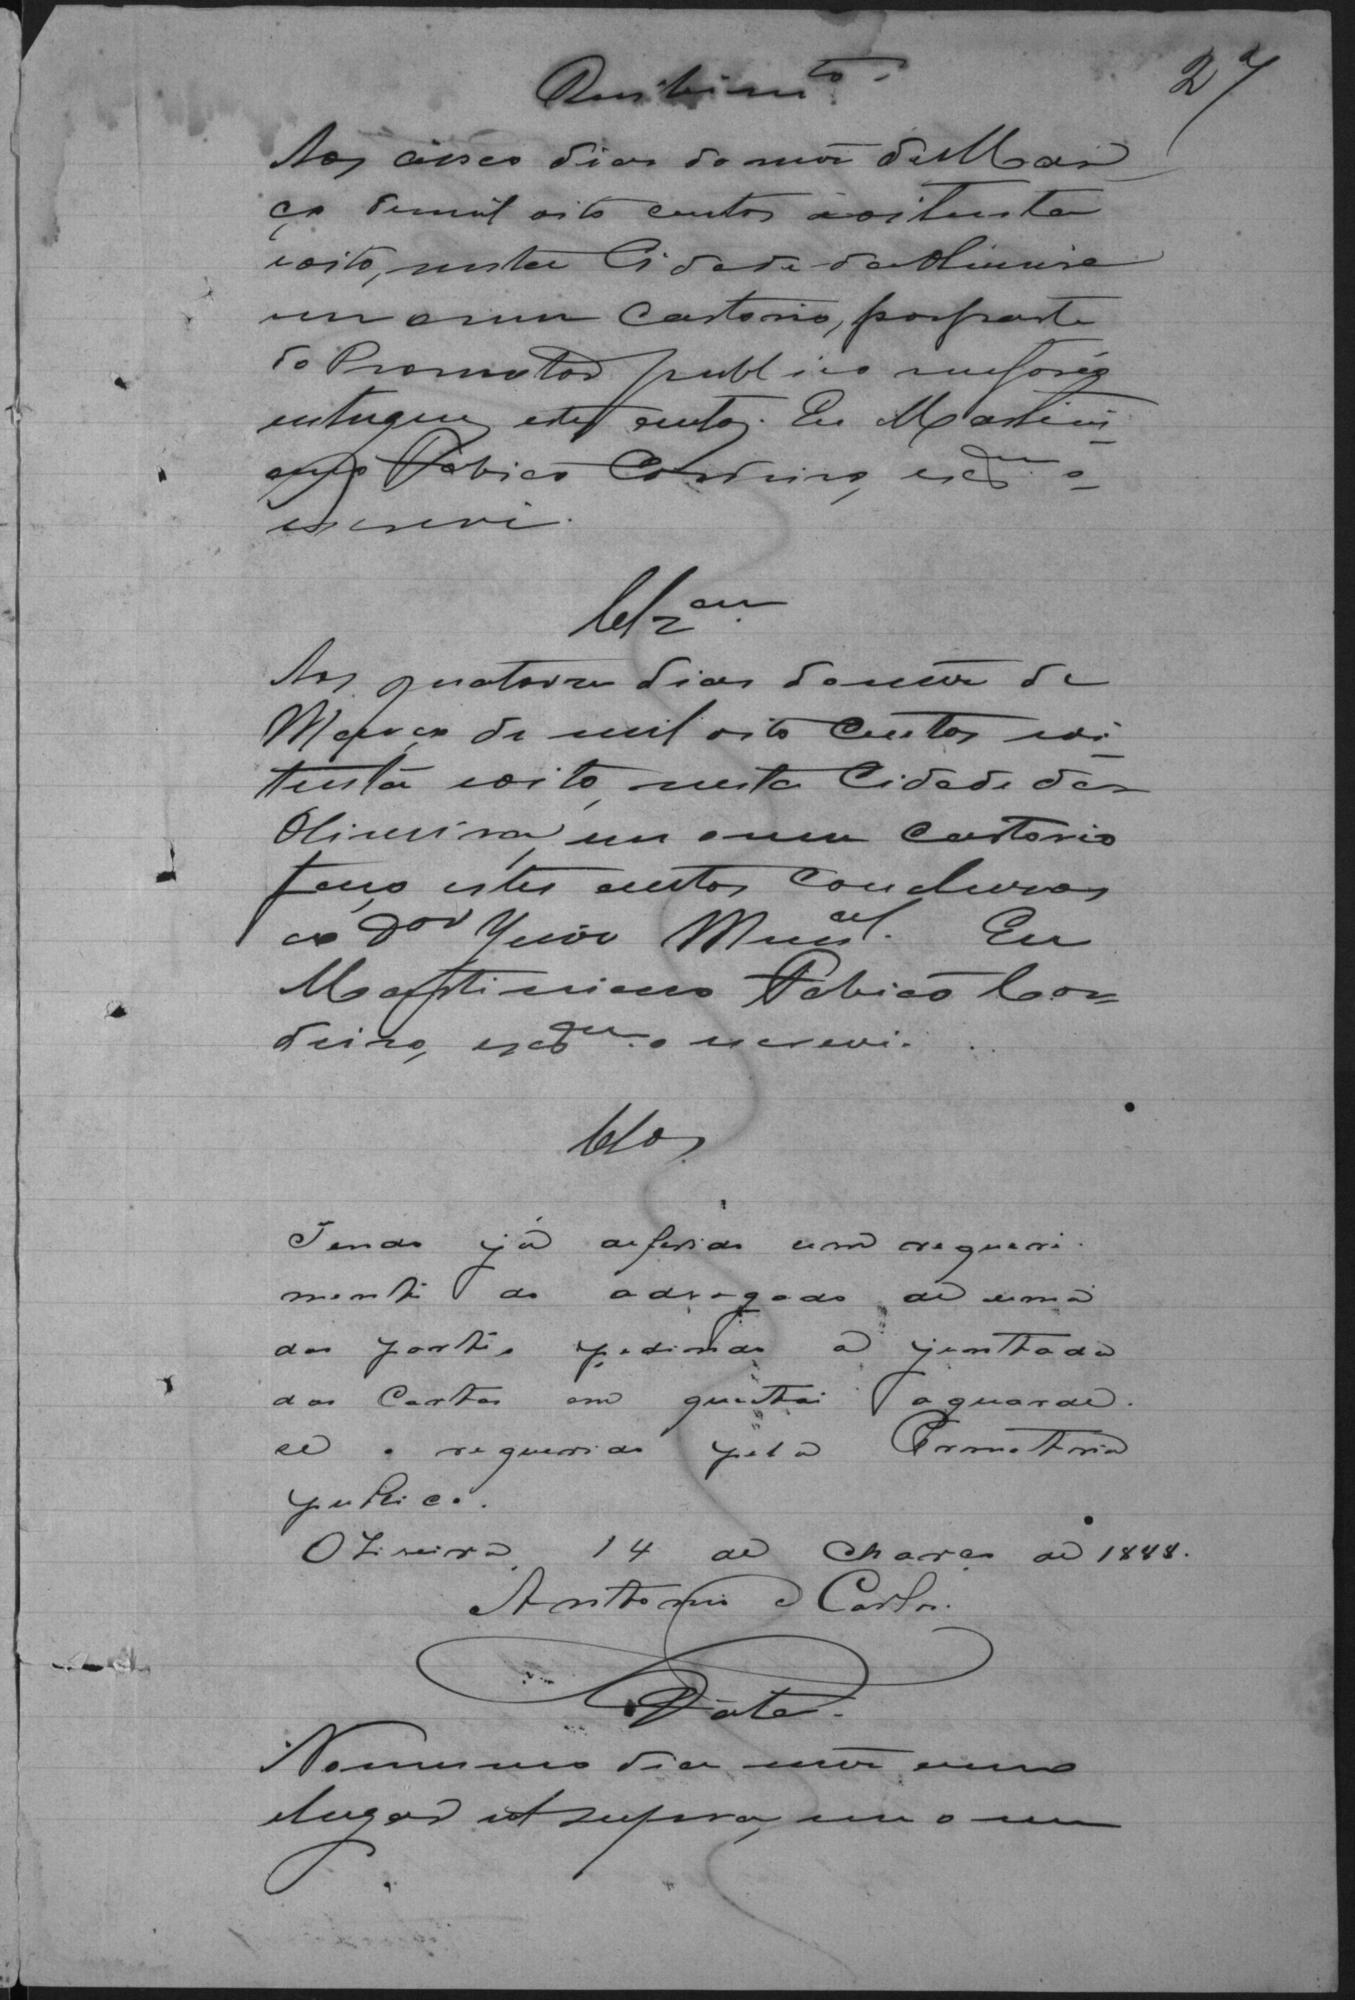 27
Recebimento.
Aos cinco dias do mez de Mar
ço de mil oito centos e oitenta
e oito, nesta Cidade da Oliveira
em o meu Cartorio, por parte
do Promotor publico me forão
entregues estes autos. Eu Martini-
ano Fabicio Cordeiro, escram o
escrevi.
Clzam
Aos quatorze dias do mez de
Março de mil oito centos e oi-
tenta e oito, nesta Cidade da
Oliveira, em o meu Cartorio
faço estes autos conclusos
ao Dor Juiz Munal. Eu
Martiniano Fabicio Cor-
deiro, escram o escrevi.
Clos
Tendo já deferido um requeri-
mento do advogado de uma
das partes pedindo a juntada
das Cartas em questão aguarde-
se o requerido pela Promotoria
publica.
Oliveira, 14 de Março de 1888.
Antonio Carlos.
Data.
No mesmo dia mez anno
e lugar ut supra, em o meu